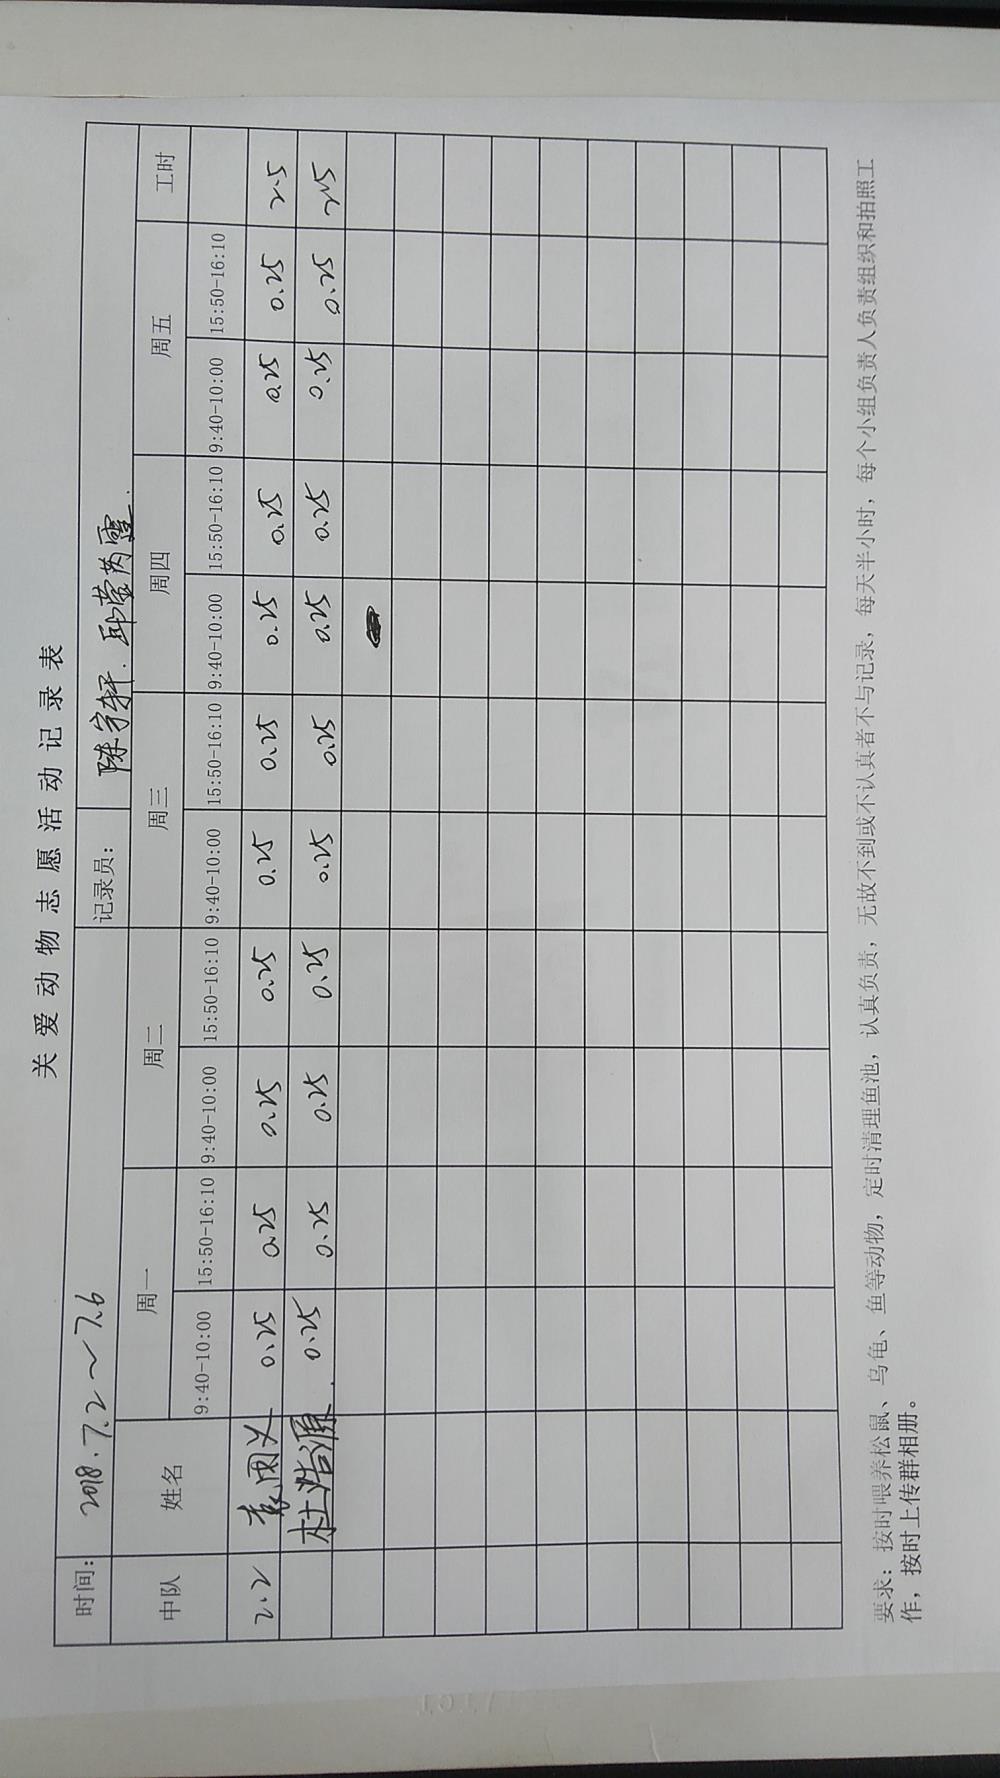 关爱动物志愿活动记录表
时间： 2018.7.2～7.6 记录员： 陈宇轩. 邱莹芮霆.
中队 姓名 周一 周二 周三 周四 周五 工时
9:40-10:00 15:50-16:10 9:40-10:00 15:50-16:10 9:40-10:00 15:50-16:10 9:40-10:00 15:50-16:10 9:40-10:00 15:50-16:10
2.2 0.25 0.25 0.25 0.25 0.25 0.25 0.25 0.25 0.25 0.25 2.5
杜浩源. 0.25 0.25 0.25 0.25 0.25 0.25 0.25 0.25 0.25 0.25 2.5
要求：按时喂养松鼠、乌龟、鱼等动物，定时清理鱼池，认真负责，无故不到或不认真者不与记录，每天半小时，每个小组负责人负责组织和拍照工
作，按时上传群相册。